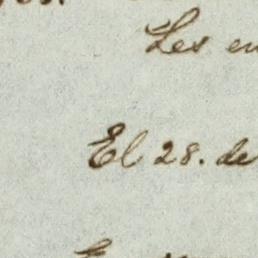 Les en
El 28. de